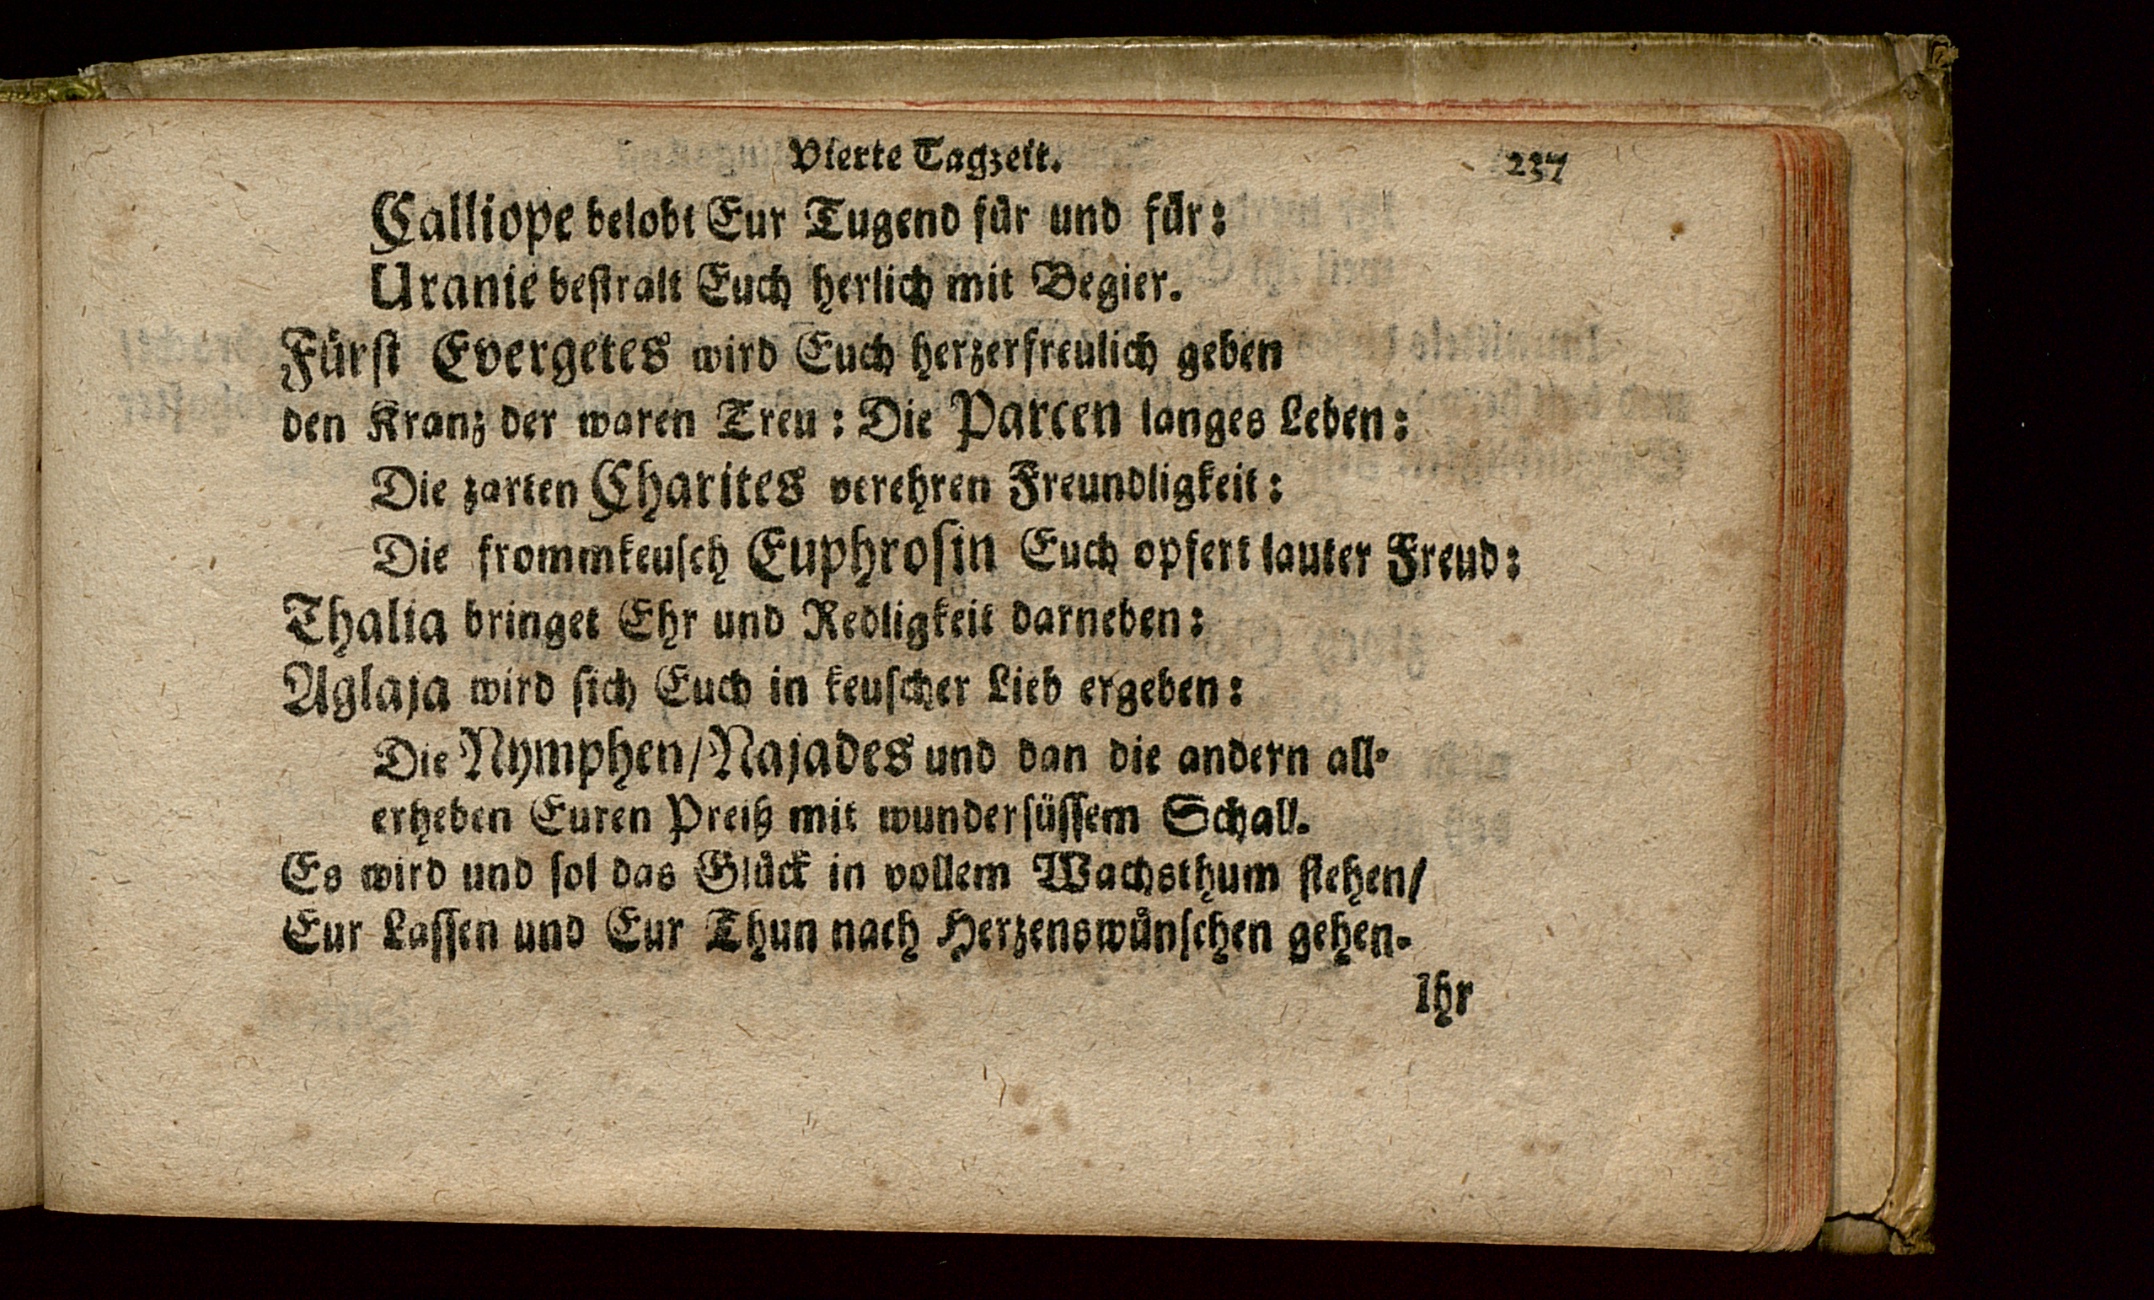 Vierte Tagzeit. 237
Calliope belobt Eur Tugend für und für:
Uranie bestralt Euch herlich mit Begier.
Fürst Evergetes wird Euch herzerfreulich geben
den Kranz der waren Treu: Die Parcen langes Leben:
Die zarten Charites verehren Freundligkeit:
Die frommkeusch Euphrosin Euch opfert lauter Freud:
Thalia bringet Ehr und Redligkeit darneben:
Aglaja wird sich Euch in keuscher Lieb ergeben:
Die Nymphen/Najades und dan die andern all-
erheben Euren Preiß mit wundersüssem Schall.
Es wird und sol das Glück in vollem Wachsthum stehen/
Eur Lassen und Eur Thun nach Herzenswünschen gehen.
Ihr